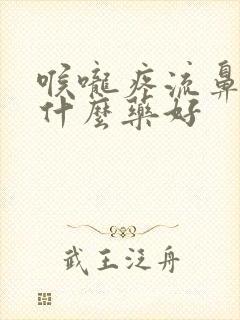 喉嚨疼流鼻
什麼藥好
武王泛舟